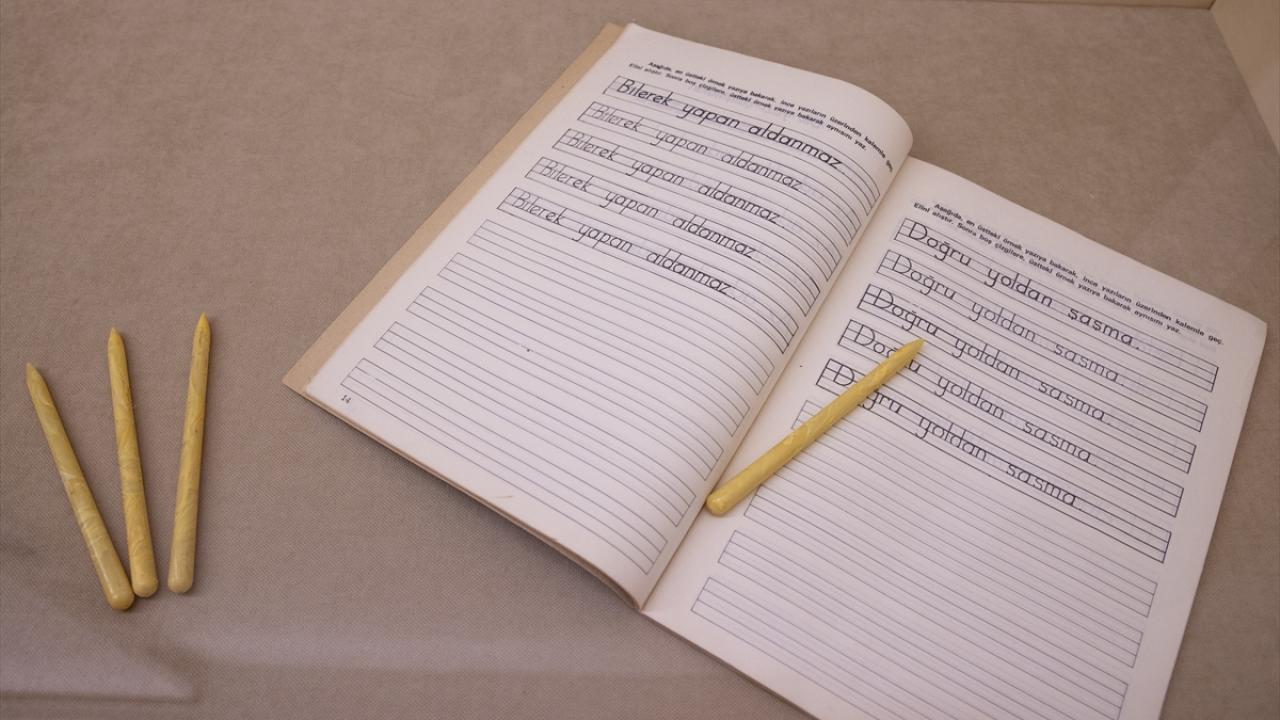 Aşağıda, en üstteki örnek yazıya bakarak, ince yazıların üzerinden kalemle geç.
Elini alıştır. Sonra boş çizgilere, üstteki örnek yazıya bakarak aynısını yaz.
Bilerek yapan aldanmaz.
Bilerek yapan aldanmaz.
Bilerek yapan aldanmaz.
Bilerek yapan aldanmaz.
Bilerek yapan aldanmaz.
14
Aşağıda, en üstteki örnek yazıya bakarak, ince yazıların üzerinden kalemle geç.
Elini alıştır. Sonra boş çizgilere, üstteki örnek yazıya bakarak aynısını yaz.
Doğru yoldan şaşma.
Doğru yoldan şaşma.
Doğru yoldan şaşma.
Doğru yoldan şaşma.
Doğru yoldan şaşma.